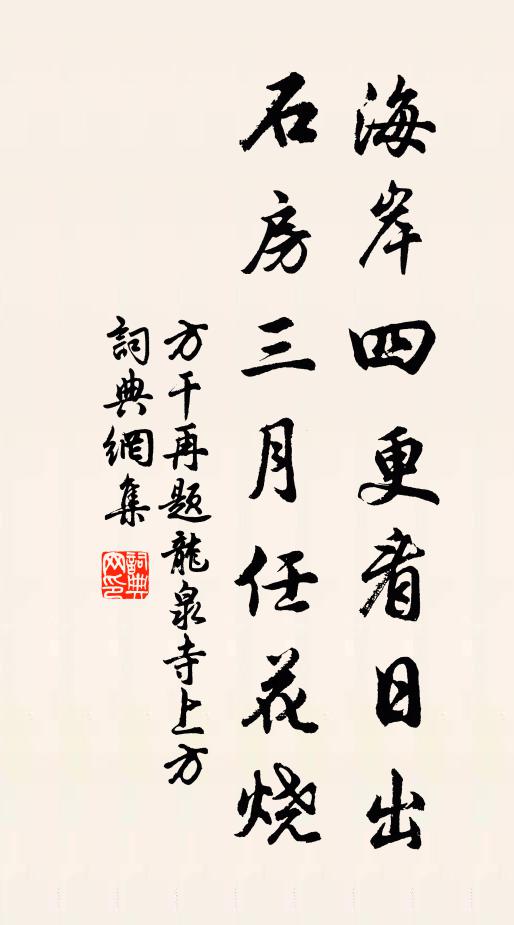 海岸四更看日出
石房三月任花烧
方干再题龍泉寺上方
詞典網集
詞典网印